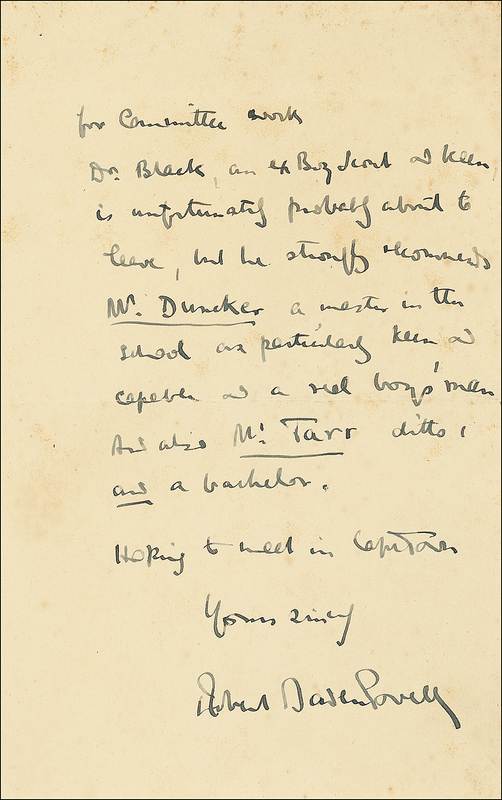 for Committee work
Dr. Black, an ex Boy Scout and keen,
is unfortunately probably about to
leave, but he strongly recommends
Mr. Duncker a master in the
school as particularly keen and
capable and a real boys' man
And also Mr. Tarr ditto,
and a bachelor.
Hoping to meet in CapeTown
Yours sincy
Robert Baden Powell